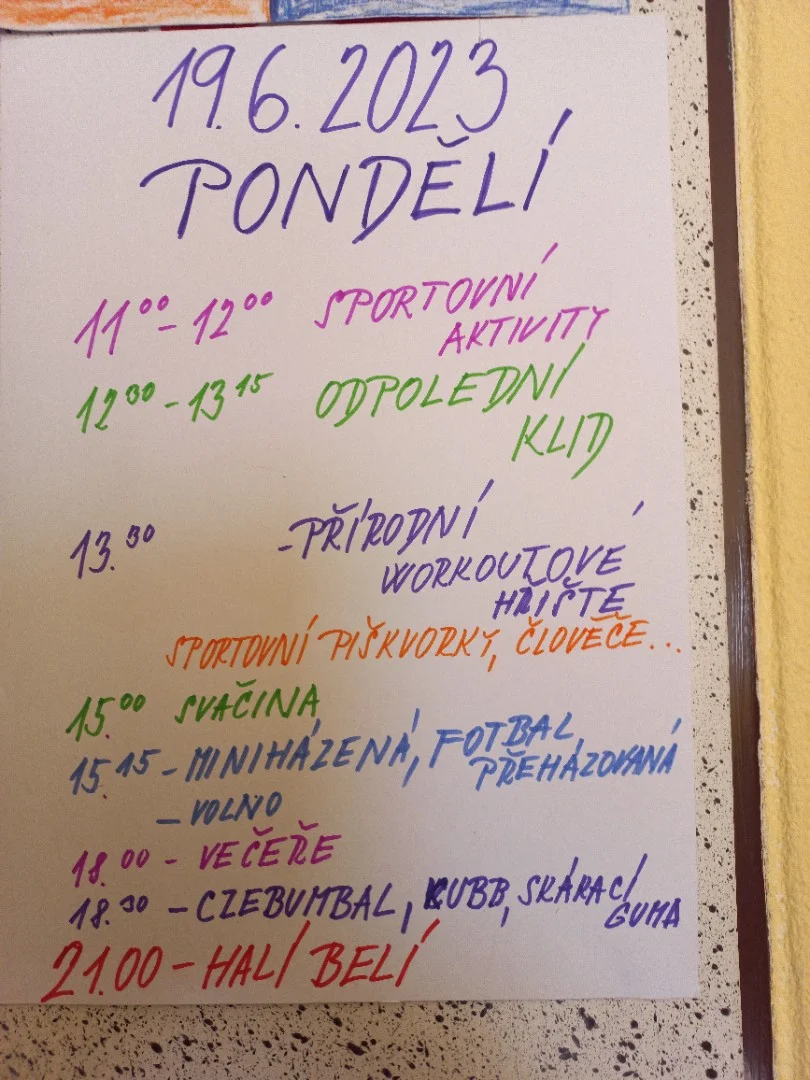 19.6.2023
PONDĚLÍ
11⁰⁰ - 12⁰⁰ SPORTOVNÍ
AKTIVITY
12³⁰ - 13¹⁵ ODPOLEDNÍ
KLID
13.³⁰ - PŘÍRODNÍ
WORKOUTOVÉ
HŘIŠTĚ
SPORTOVNÍ PIŠKVORKY, ČLOVĚČE...
15.⁰⁰ SVAČINA
15.¹⁵ - MINIHÁZENÁ, FOTBAL,
PŘEHÁZOVANÁ
- VOLNO
18.⁰⁰ - VEČEŘE
18.³⁰ - CZEBUMBAL, KUBB, SKÁKACÍ
GUMA
21.00 - HALÍ BELÍ